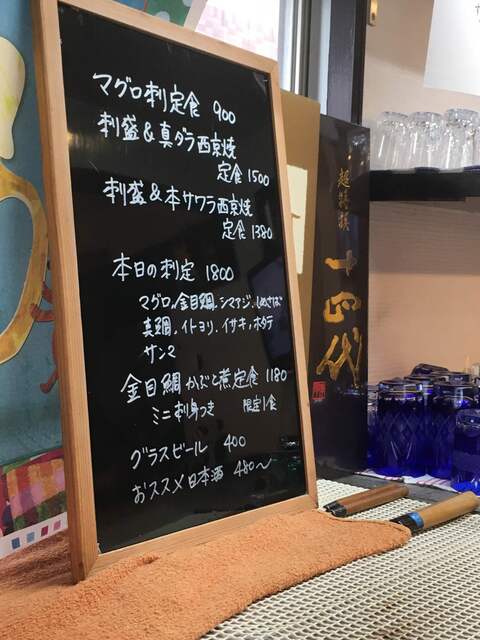 マグロ刺定食 900
刺盛&真ダラ西京焼
定食1500
刺盛&本サワラ西京焼
定食1380
本日の刺定 1800
マグロ、金目鯛、シマアジ、しめさば
真鯛、イトヨリ、イサキ、ホタテ
サンマ
金目鯛かぶと煮定食 1180
ミニお刺身つき 限定1食
グラスビール 400
おススメ日本酒 480〜
超特撰
十四代